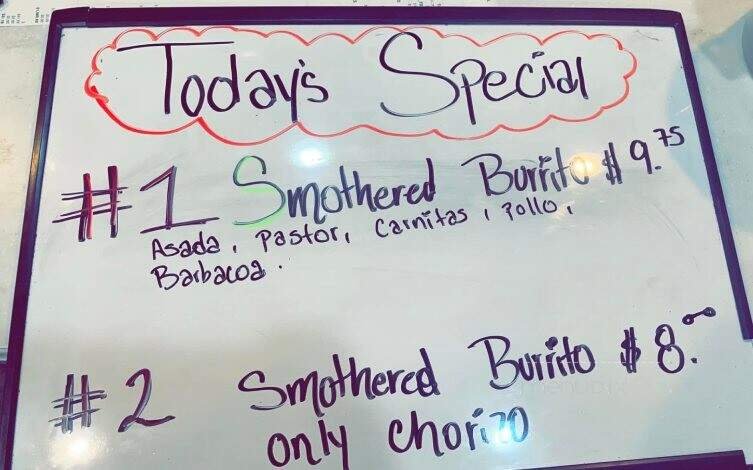 Today's Special
#1 Smothered Burrito $9.75
Asada, Pastor, Carnitas, Pollo,
Barbacoa.
#2 Smothered Burrito $8.00
only chorizo